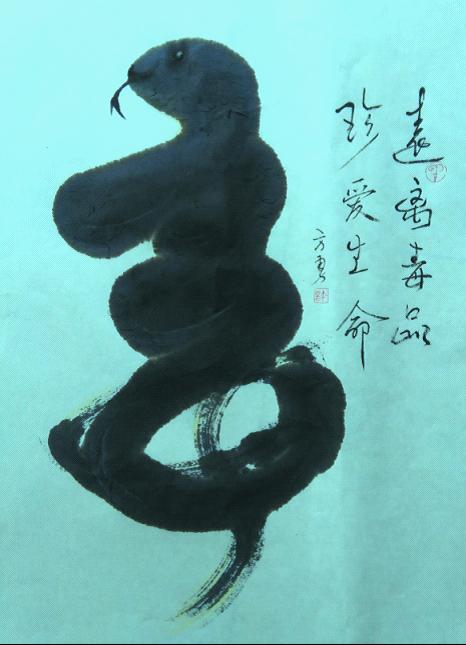 遠离毒品
珍爱生命
方勇